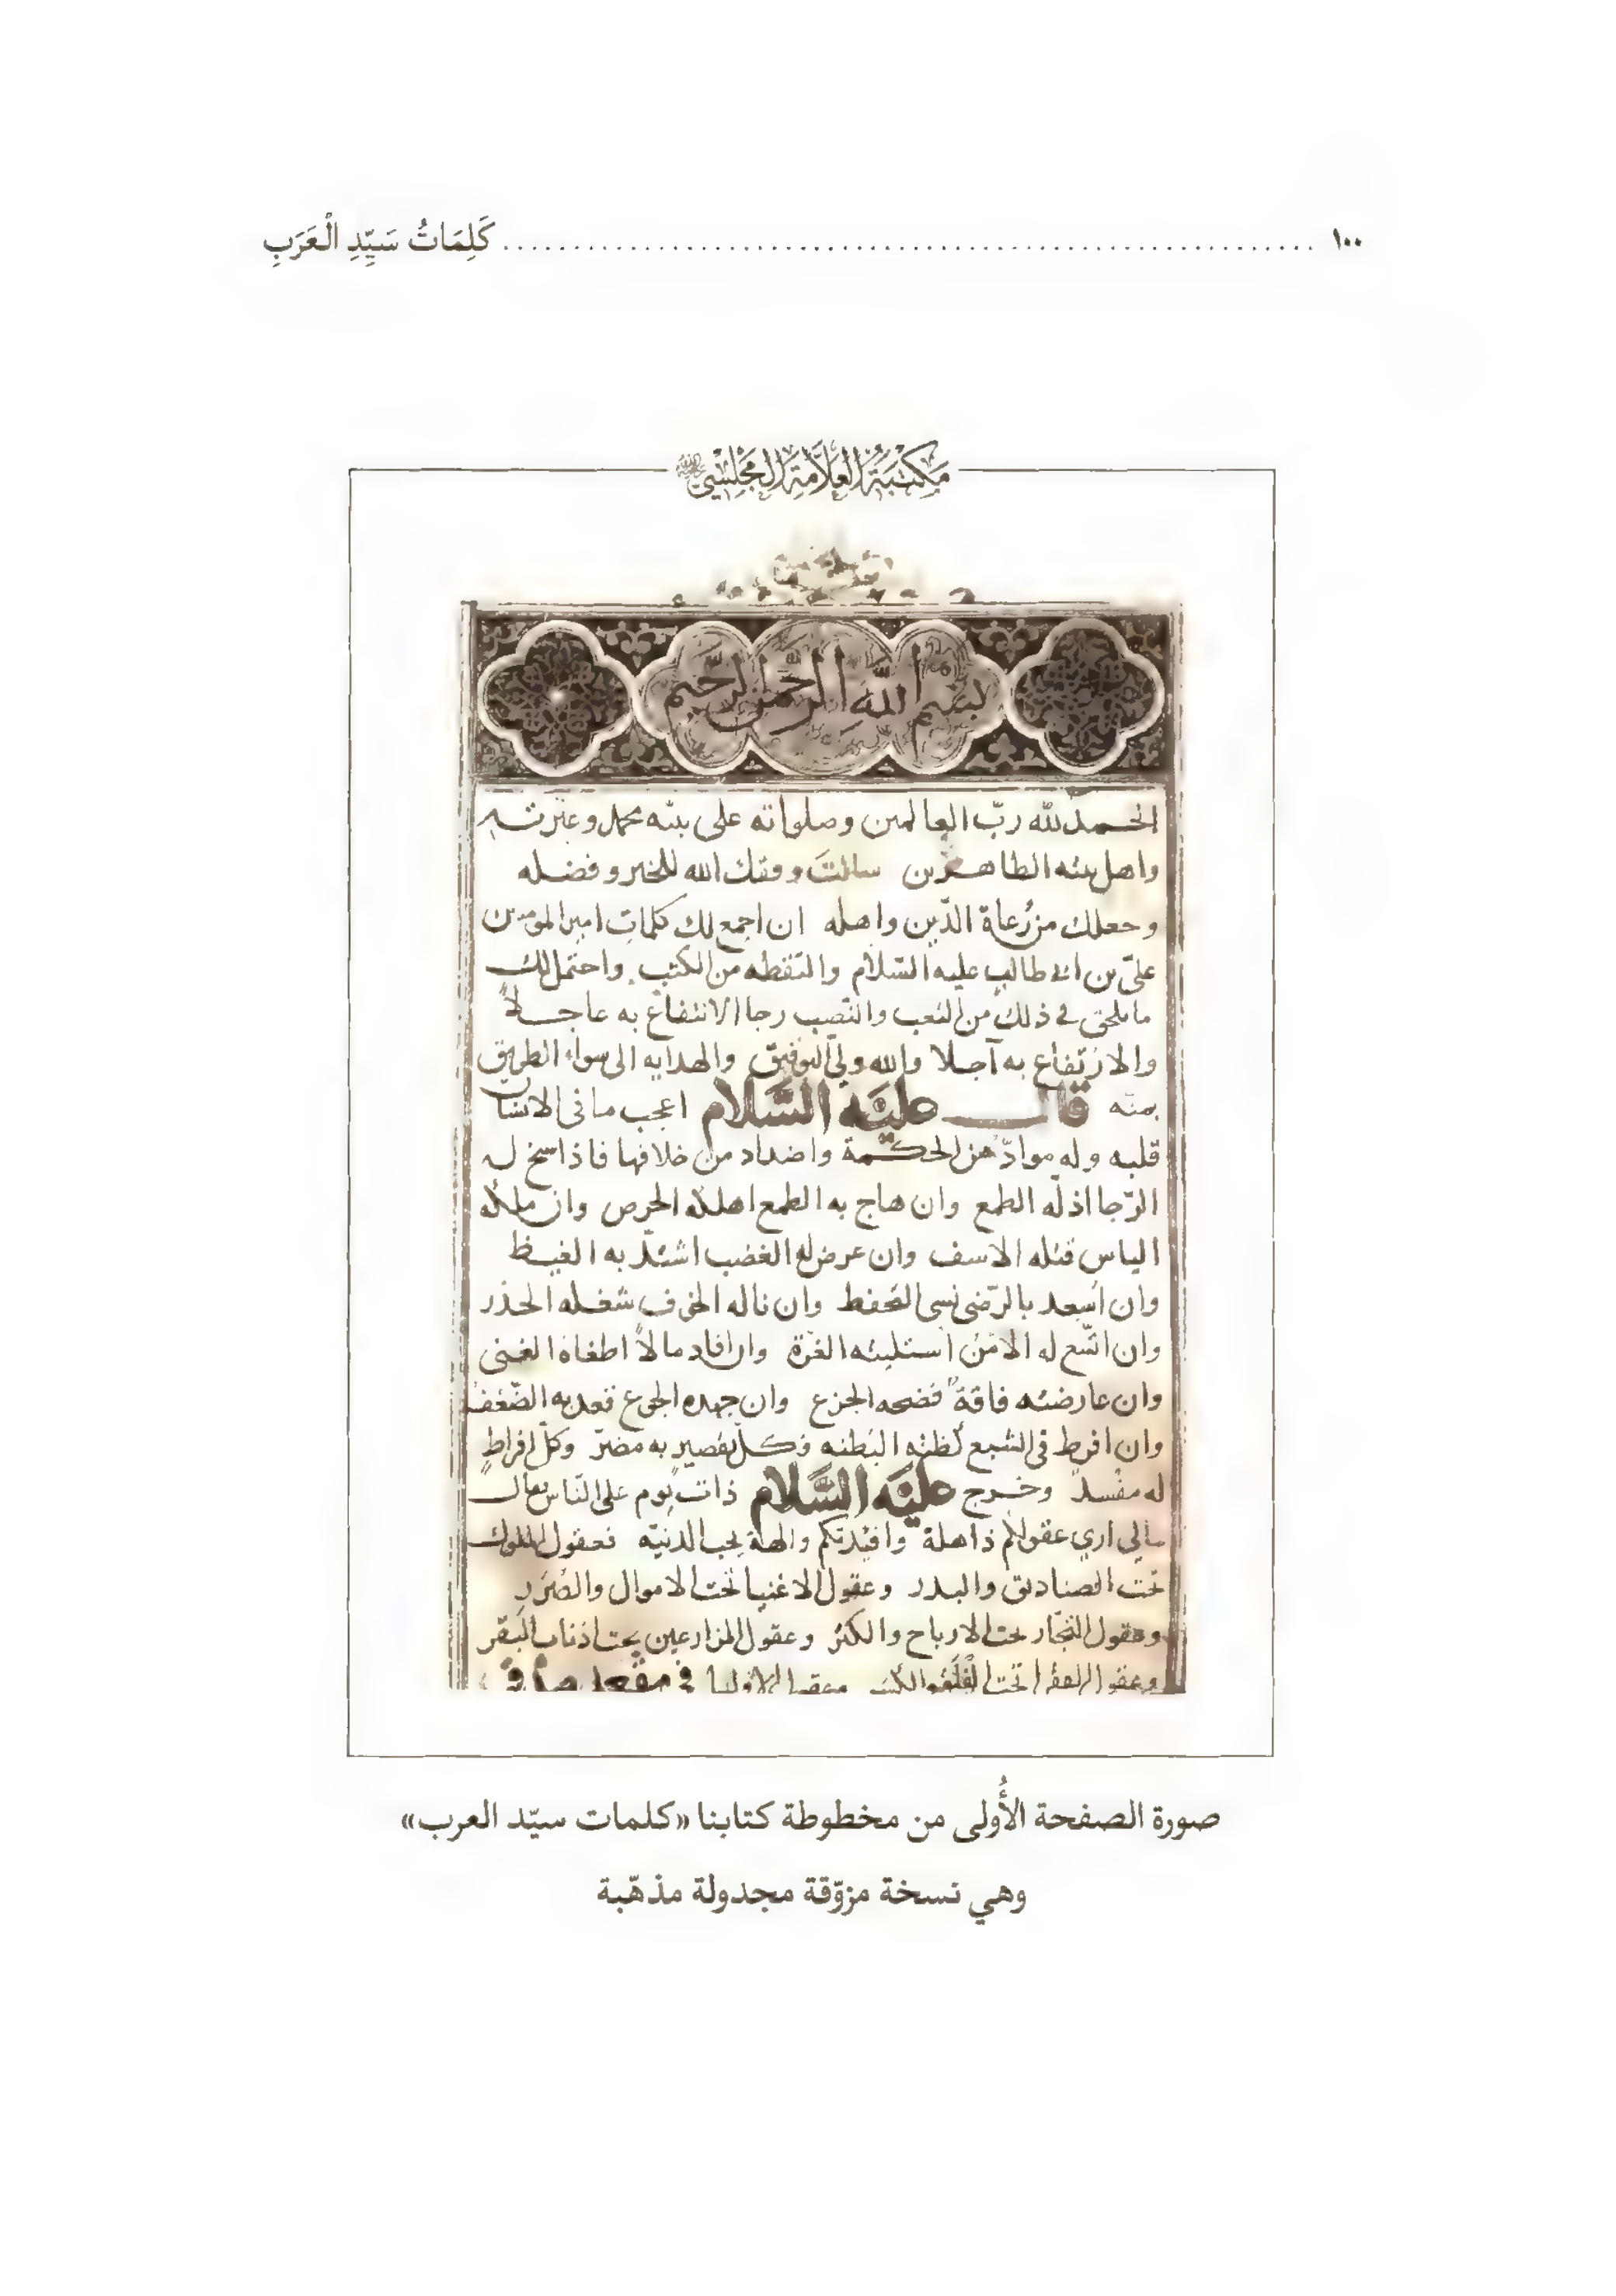 ١٠٠ ........ كَلِمَاتُ سَيِّدِ الْعَرَبِ
مَكْتَبَةُ العَلَّامَةِ المَجْلِسِيّ
بسم الله الرحمن الرحيم
الحمد لله ربّ العالمين وصلواته على نبيّه محمد وعترته
واهل بيته الطاهرين سالتَ وفقك الله للخير وفضله
وجعلك من رُعاة الدّين واهله ان اجمع لك كلمات امير المومنين
عليّ بن ابي طالب عليه السّلام والتقطه من الكتب واحتمل لك
ما يلحق في ذلك من التعب والنّصب رجا الانتفاع به عاجلاً
والارتفاع به آجلا والله وليّ التوفيق والهدايه الى سواء الطريق
بمنّه قال عليه السّلام اعجب ما فى الانسان
قلبه وله موادّ من الحكمة واضداد من خلافها فاذا سنح له
الرّجا اذلّه الطمع وان هاج به الطمع اهلكه الحرص وان ملكه
الياس قتله الاسف وان عرض له الغضب اشتدّ به الغيظ
وان اسعد بالرّضى نسى التحفظ وان ناله الخوف شغله الحذر
وان اتّسع له الامن استلبته الغرّة وان افاد مالاً اطغاه الغنى
وان عارضته فاقة فضحه الجزع وان جهده الجوع قعد به الضّعف
وان افرط فى الشبع كظته البطنه فكلّ تقصير به مضرّ وكلّ افراطٍ
له مفسد وخرج عليه السّلام ذات يوم على النّاس فقال
مالى ارى عقولكم ذاهلة وافئدتكم والهة بحب الدنيّه فعقول الملوك
تحت الصناديق والبدر وعقول الاغنيا تحت الاموال والصُرَرِ
وعقول التجّار تحت الارباح والكثر وعقول المزارعين تحت اذناب البقر
وعقول الفقرا تحت وعقول الاوليا فى مقعد صدق
صورة الصفحة الأُولى من مخطوطة كتابنا «كلمات سيّد العرب»
وهي نسخة مزوّقة مجدولة مذهّبة